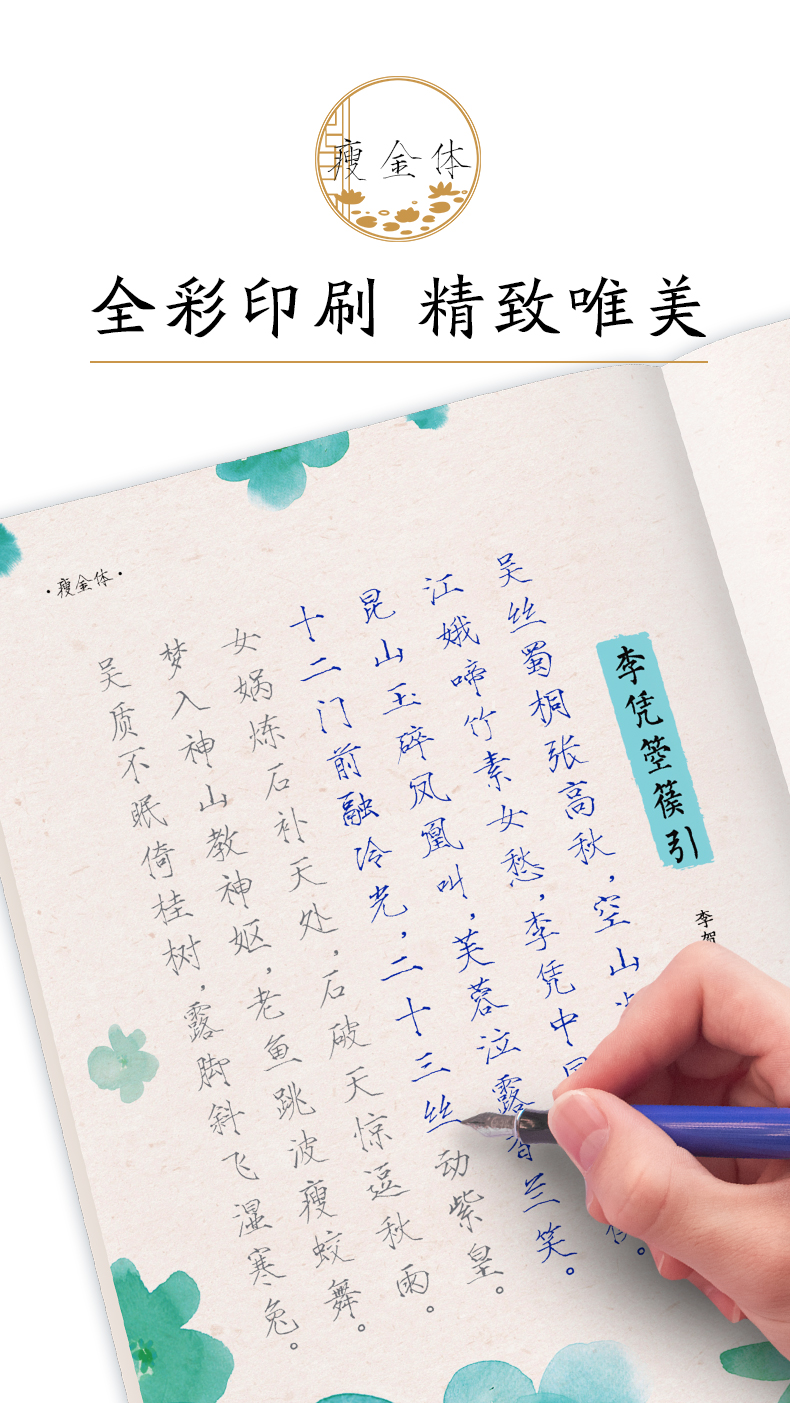 瘦金体
全彩印刷 精致唯美
·瘦金体·
李凭箜篌引
李贺
吴丝蜀桐张高秋,空山
江娥啼竹素女愁,李凭中国
昆山玉碎凤凰叫,芙蓉泣露香兰笑。
十二门前融冷光,二十三丝动紫皇。
女娲炼石补天处,石破天惊逗秋雨。
梦入神山教神妪,老鱼跳波瘦蛟舞。
吴质不眠倚桂树,露脚斜飞湿寒兔。